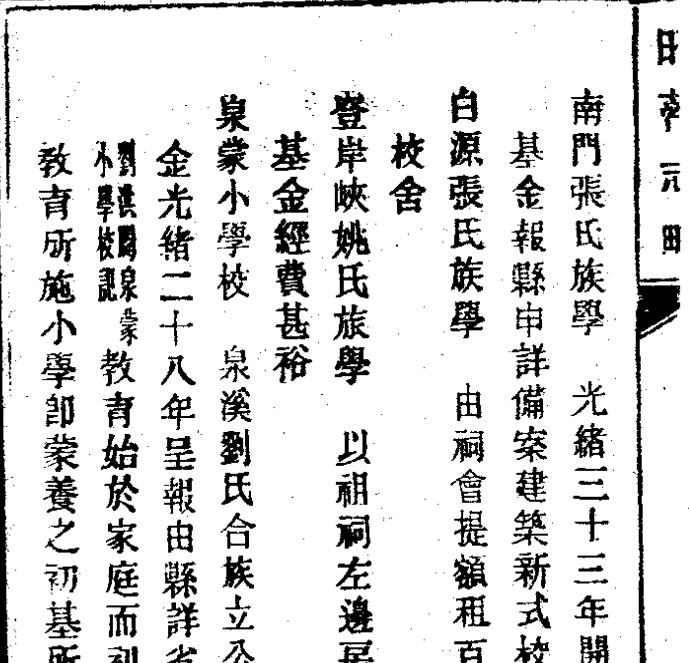 南門張氏族學　光緒三十三年開
基金報縣申詳備案建築新式校
白源張氏族學　由祠會提額租百
校舍
登岸峽姚氏族學　以祖祠左邊房
基金經費甚裕
泉蒙小學校　泉溪劉氏合族立公
金光緒二十八年呈報由縣詳省
劉洪闢泉蒙
小學校記　教育始於家庭而到
教育所施小學卽蒙養之初基所